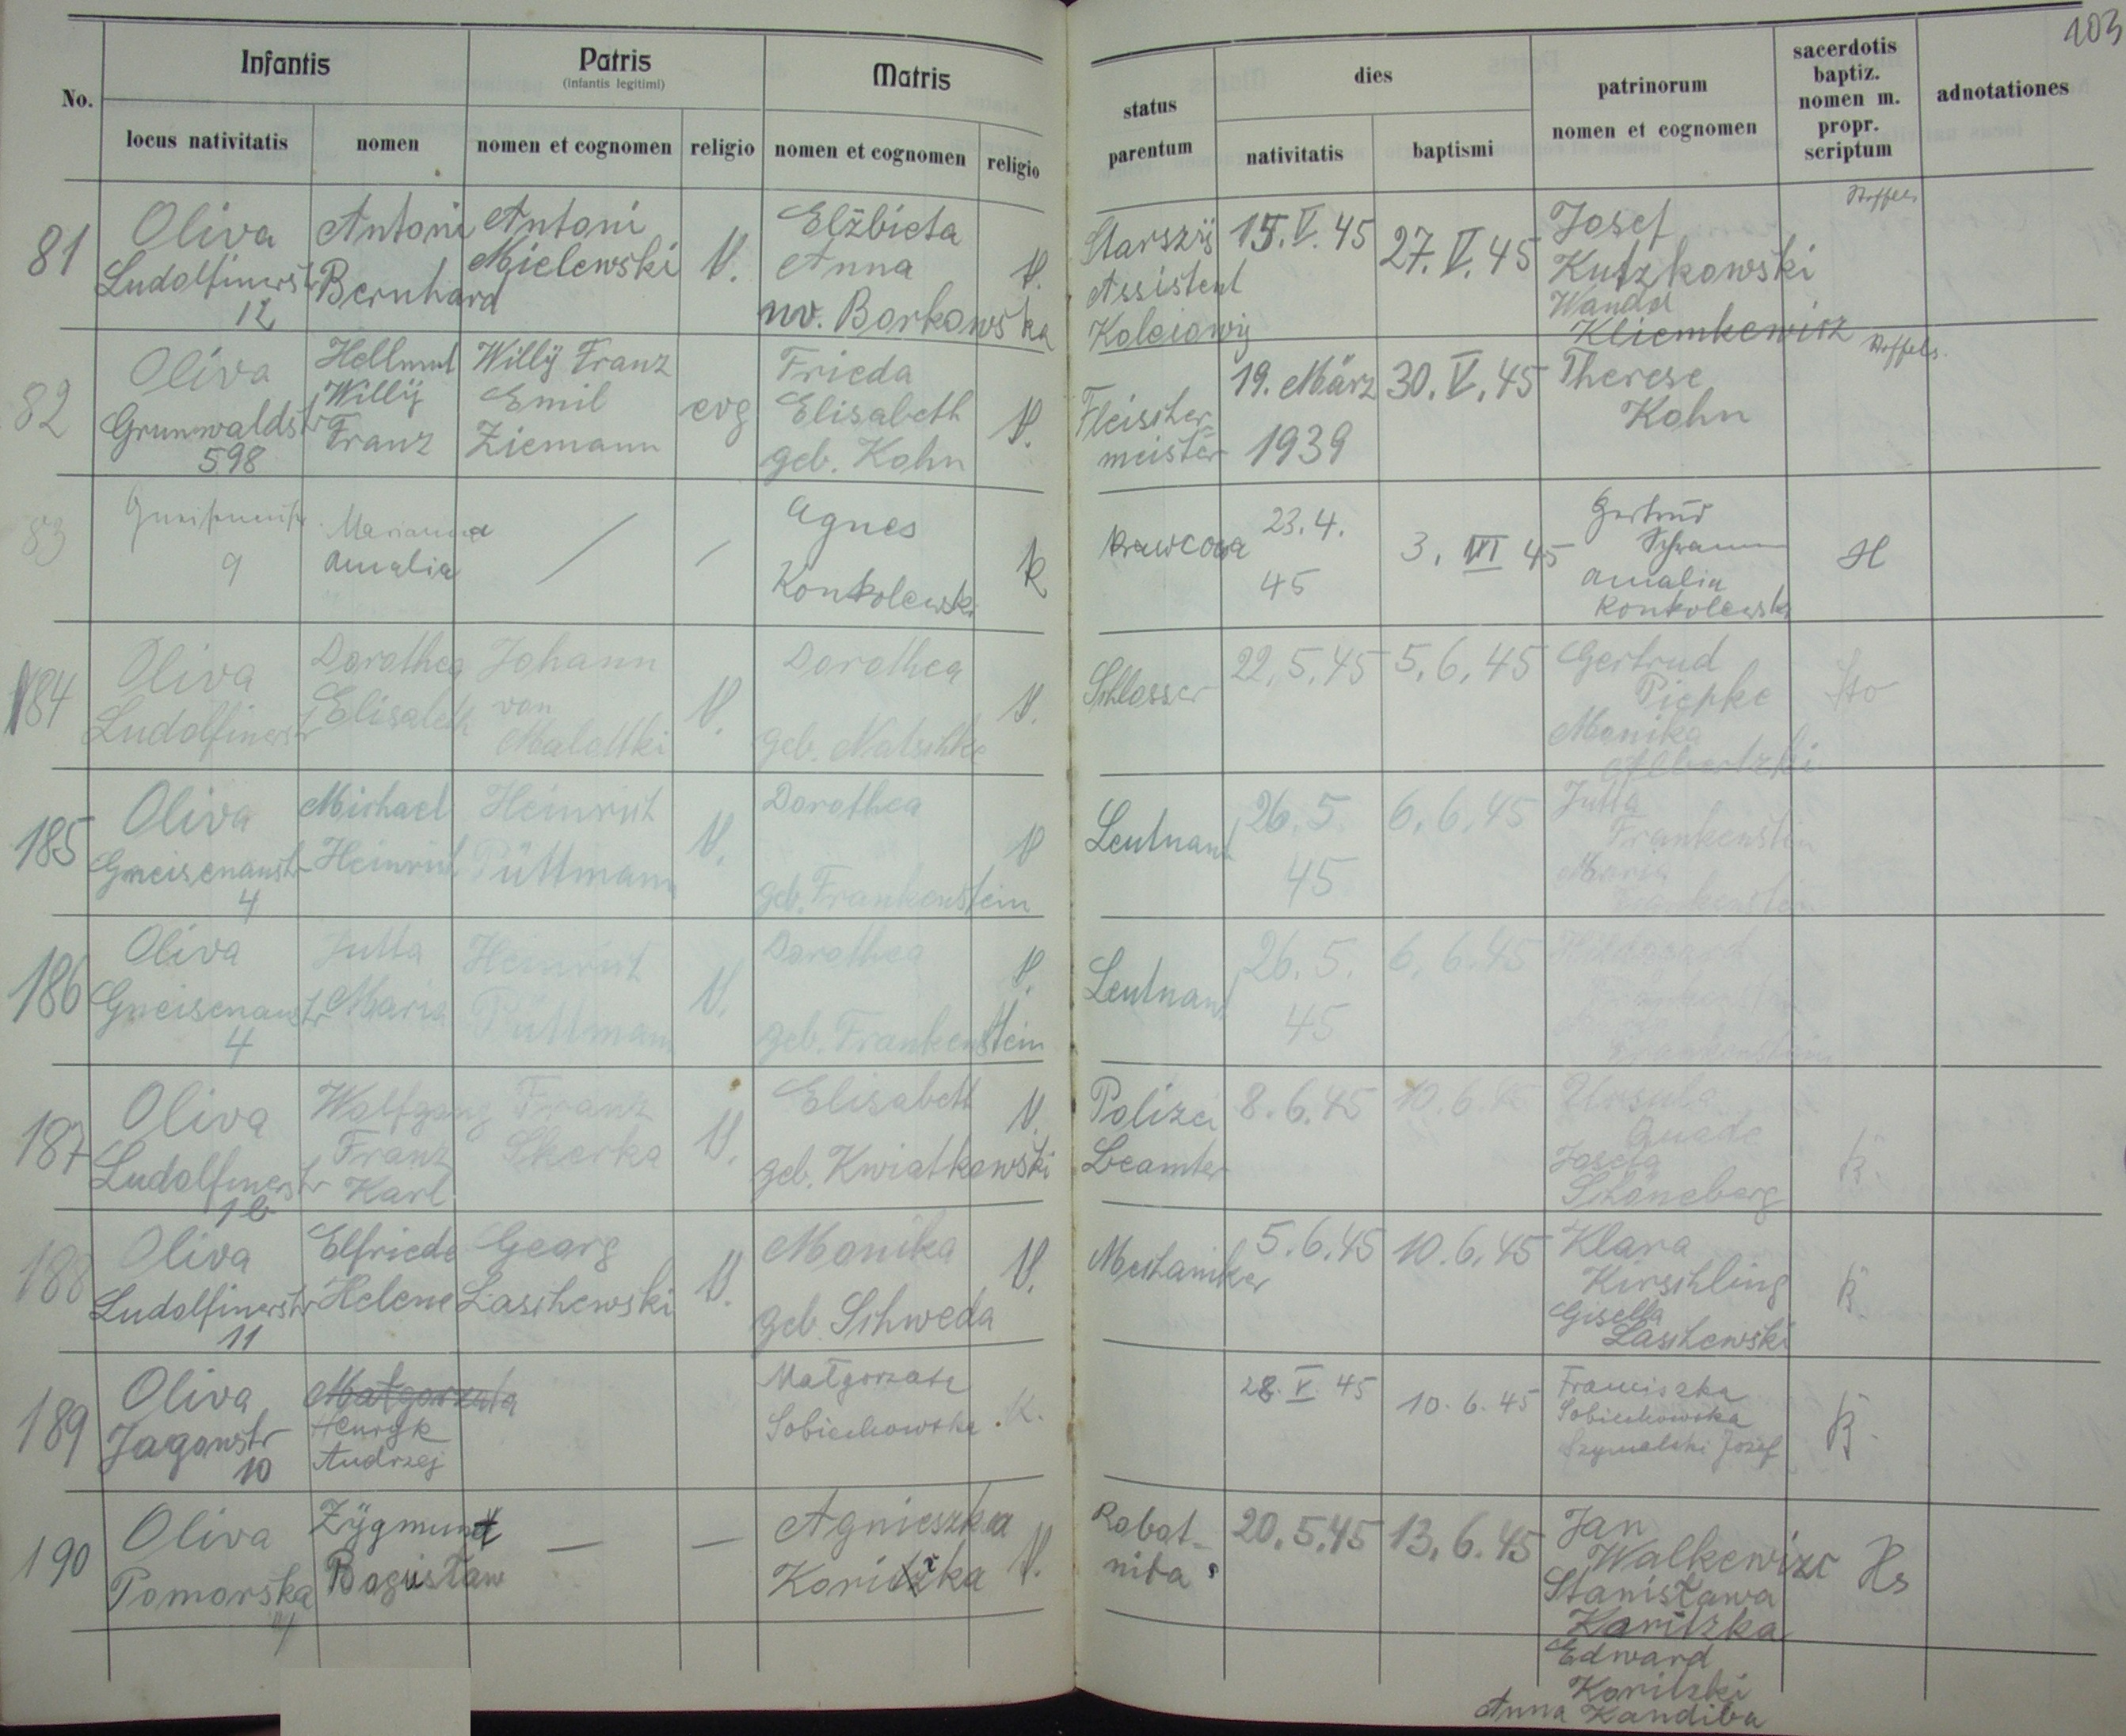 103
No.
Infantis
locus nativitatis
nomen
Patris
(infantis legitimi)
nomen et cognomen
religio
Matris
nomen et cognomen
religio
status
parentum
dies
nativitatis
baptismi
patrinorum
nomen et cognomen
sacerdotis
baptiz.
nomen m.
propr.
scriptum
adnotationes
81
Oliva
Ludolfinerstr
12
Antoni
Bernhard
Antoni
Mielewski
Elżbieta
Anna
Borkowska
Starszy
Assistent
15. V. 45
27. V. 45
Josef
Kutzkowski
Wanda
Kliemkewitz
82
Oliva
Grunwaldstr
598
Hellmut
Willy
Franz
Willy Franz
Emil
Ziemann
evg
Frieda
Elisabeth
geb. Kohn
Fleischer-
meister
19. März
1939
30. V. 45
Therese
Kohn
83
9
Marianna
Amalia
/
/
Agnes
Konkolewski
k
Krawcowa
23. 4.
45
3. VI 45
Gertrud
Schramm
Amalia
Konkolewski
H
184
Oliva
Ludolfinerstr
Dorothea
Elisabeth
Johann
von
Malottki
Dorothea
geb. Natschke
Schlosser
22. 5. 45
5. 6. 45
Gertrud
Piepke
Monika
185
Oliva
Gneisenaustr
4
Michael
Heinrich
Heinrich
Püttmann
Dorothea
geb. Frankenstein
Leutnant
26. 5.
45
6. 6. 45
Jutta
Frankenstein
Maria
Frankenstein
186
Oliva
Gneisenaustr
4
Jutta
Maria
Heinrich
Püttmann
Dorothea
geb. Frankenstein
Leutnant
26. 5.
45
6. 6. 45
Hildegard
Frankenstein
Frankenstein
187
Oliva
Ludolfinerstr
Wolfgang
Franz
Karl
Franz
Skerka
Elisabeth
geb. Kwiatkowski
Polizei
Beamter
8. 6. 45
10. 6. 45
Ursula
Quade
Josefa
Schöneberg
188
Oliva
Ludolfinerstr
11
Elfriede
Helene
Georg
Laschewski
Monika
geb. Schweda
Mechaniker
5. 6. 45
10. 6. 45
Klara
Kirschling
Gisella
Laschewski
189
Oliva
Jagowstr
10
Małgorzata
Henryk
Andrzej
Małgorzata
Sobiechowska
K.
28. V. 45
10. 6. 45
Franciszka
Sobiechowska
Szymalski Józef
190
Oliva
Pomorska
Zygmunt
Bogusław
—
—
Agnieszka
Robot-
nica
20. 5. 45
13. 6. 45
Jan
Walkewizc
Stanisława
Koritzka
Edward
Koritzki
Anna Kandiba